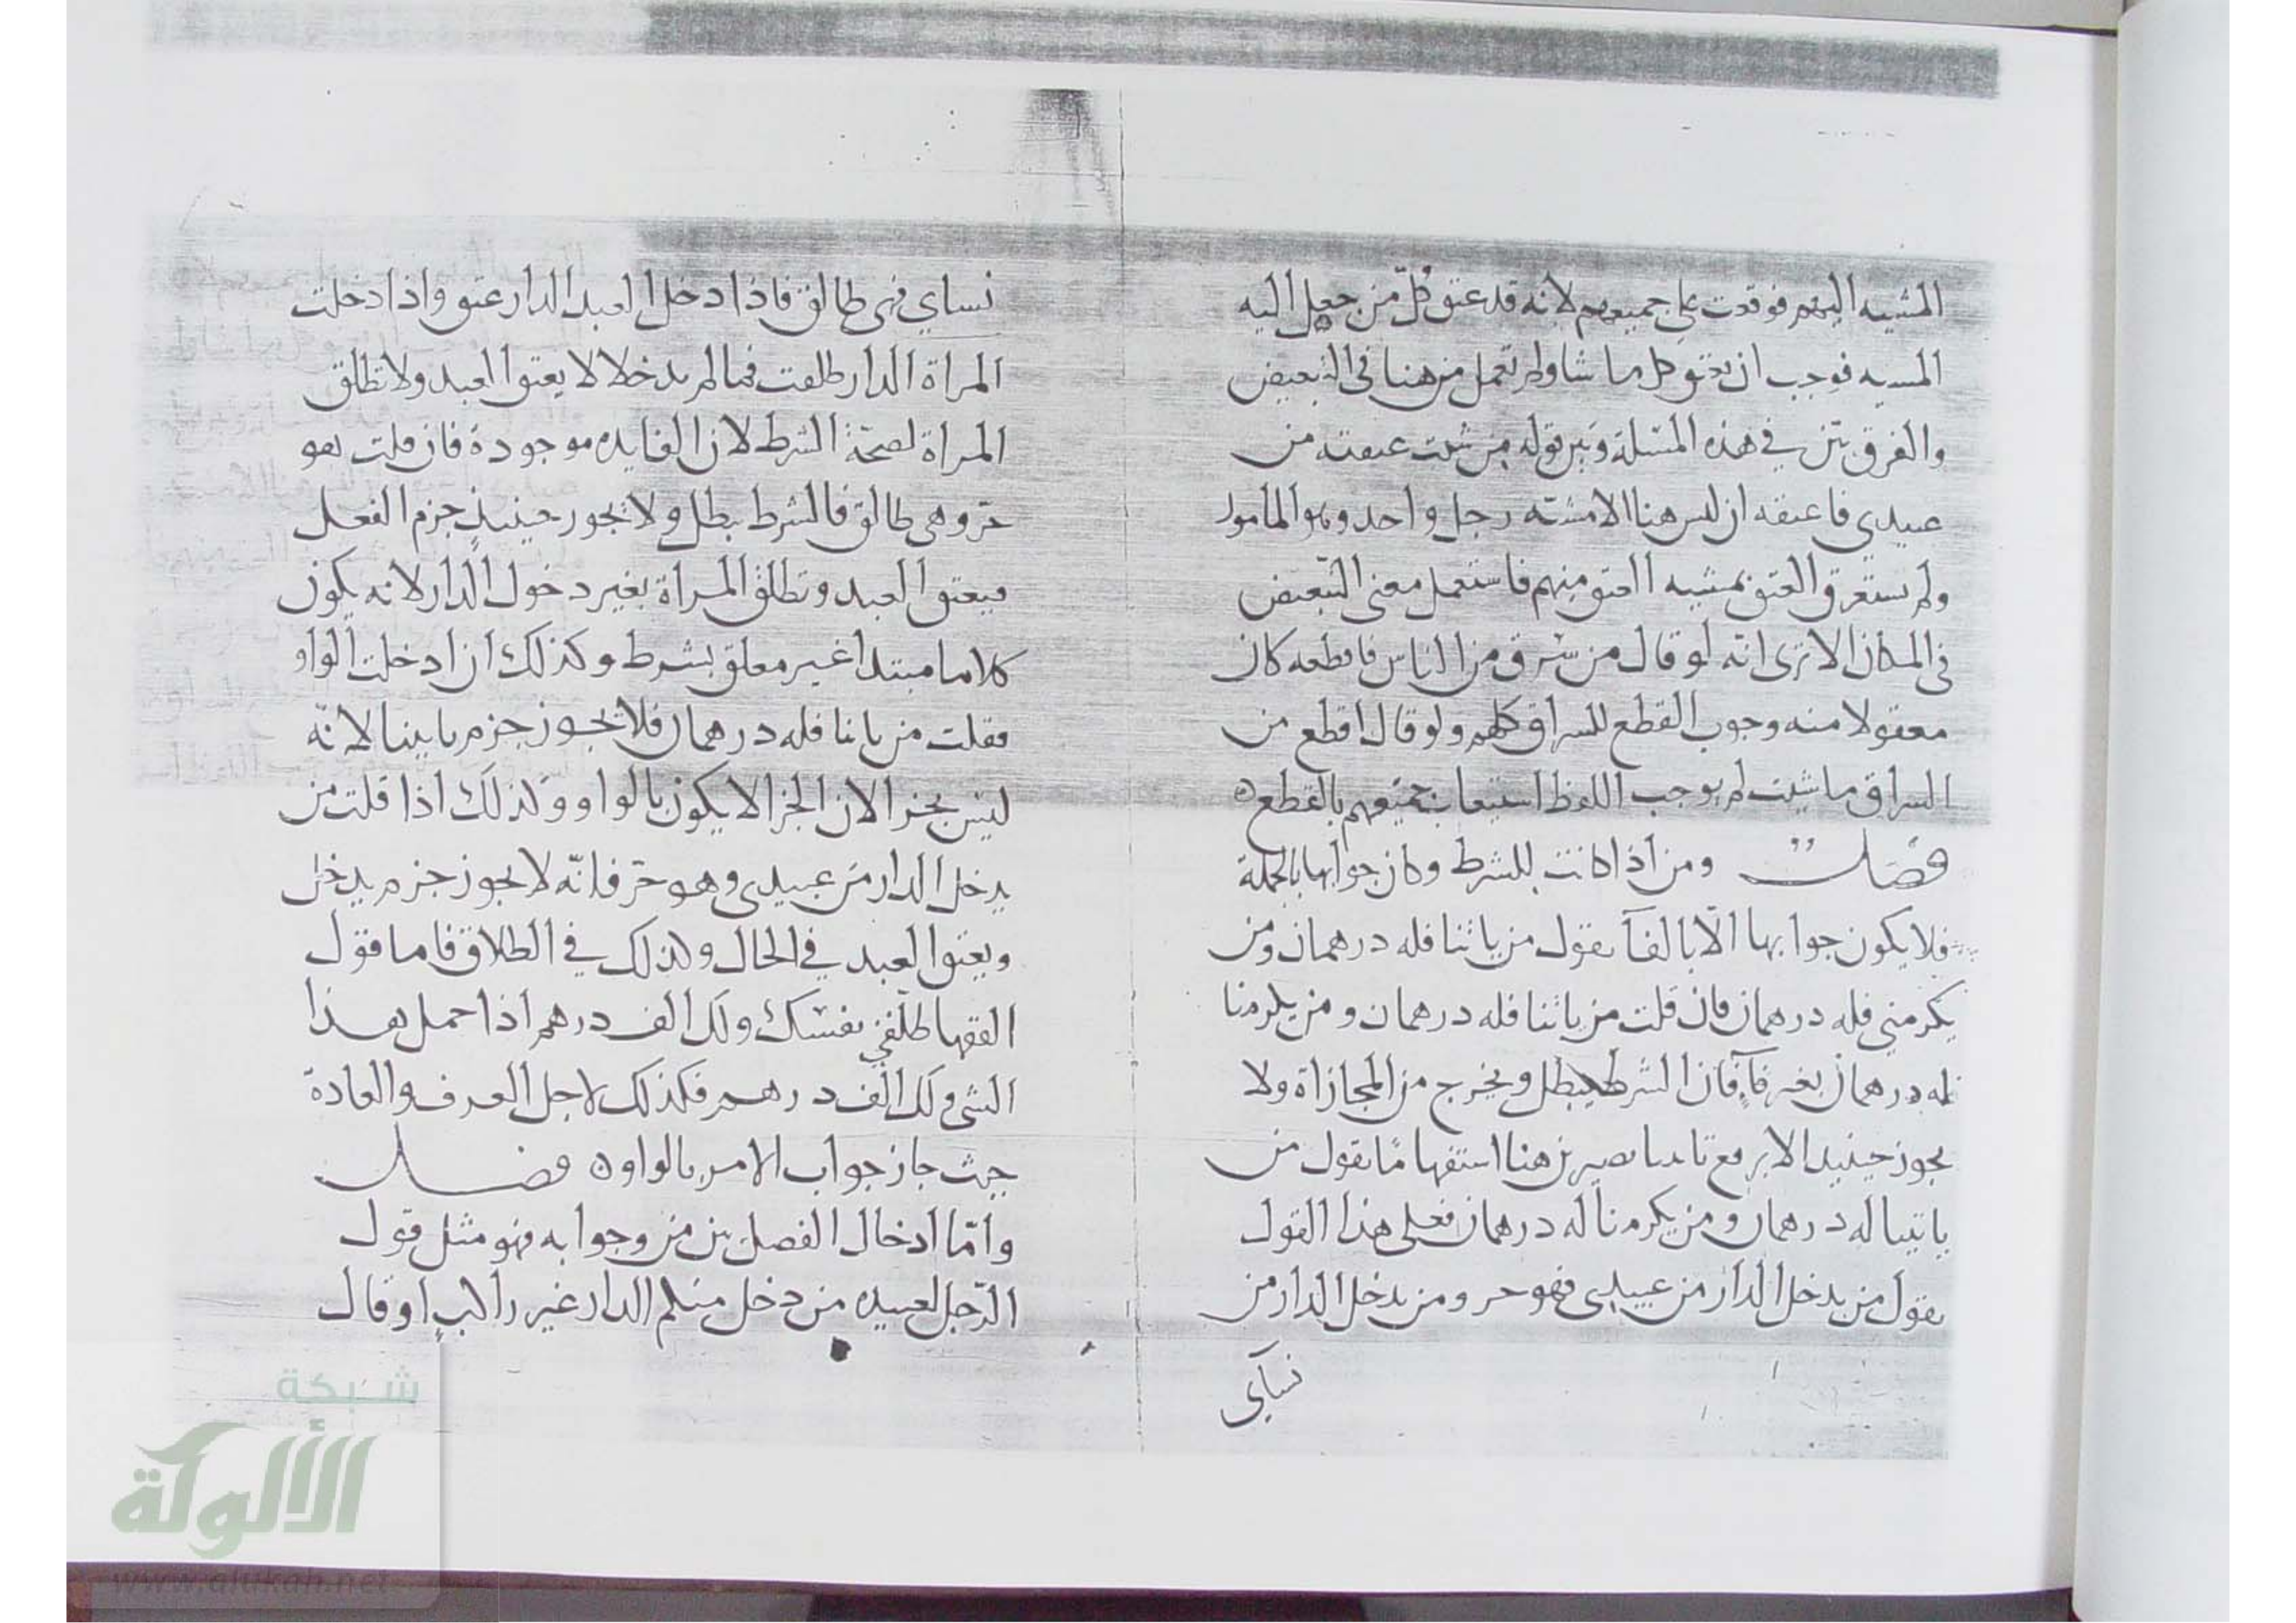 المشيه اليهم فوقعت على جميعهم لانه قد عتق كل من جعل اليه
المسيه فوجب ان يعتق كل ما شا ولم تعمل من هنا في التبعيض
والفرق بين في هذه المسئلة وبين قوله من شئت عتقه من
عبيدي فاعتقه ان ليس هنا الا مشئته رجل واحد وهو المامور
ولم يستغرق العتق بمشيه العتق منهم فاستعمل معنى التبعيض
في المكان الا ترى انه لو قال من سرق من الناس فاقطعه كان
معقولا منه وجوب القطع للسراق كلهم ولو قال اقطع من
السراق ما شيت لم يوجب اللفظ استيعاب جميعهم بالقطع ه
فصل ومن اذا كانت للشرط وكان جوابها بالجملة
فلا يكون جوابها الا بالفآ تقول من ياتنا فله درهمان ومن
يكرمني فله درهمان فان قلت من ياتنا فله درهمان ومن يكرمنا
له درهمان بغير فآ فان الشرط يبطل ويخرج من المجازاة ولا
يجوز حينيد الا برفع ياتينا تصير من هنا استفهاما تقول من
ياتينا له درهمان ومن يكرمنا له درهمان فعلى هذا القول
تقول من يدخل الدار من عبيدي فهو حر ومن يدخل الدار من
نساي
نساي فهى طالق فاذا دخل العبد الدار عتق واذا دخلت
المراة الدار طلقت فما لم يدخلا لا يعتق العبد ولا تطلق
المراة لصحة الشرط لان الفايده موجودة فان قلت هو
حر وهى طالق فالشرط يبطل ولا يجوز حينيذ جزم الفعل
فيعتق العبد وتطلق المراة بغير دخول الدار لانه يكون
كلاما مبتدا غير معلق بشرط وكذلك ان ادخلت الواو
فقلت من ياتنا فله درهمان فلا يجوز جزم ياتينا لانه
ليس بجزا لان الجزا لا يكون بالواو وكذلك اذا قلت من
يدخل الدار من عبيدى وهو حر فانه لا يجوز جزم يدخل
ويعتق العبد في الحال وكذلك في الطلاق فاما قول
الفقها طلقني نفسك ولك الف درهم اذا احمل هذا
الشى ولك الف درهم فكذلك لاجل العرف والعادة
حيث جاز جواب الامر بالواو ه فصل
واما ادخال الفصل بين من وجوابه فهو مثل قول
الرجل لعبيده من دخل منكم الدار غير راكب او قال
شبكة
الألوكة
www.alukah.net